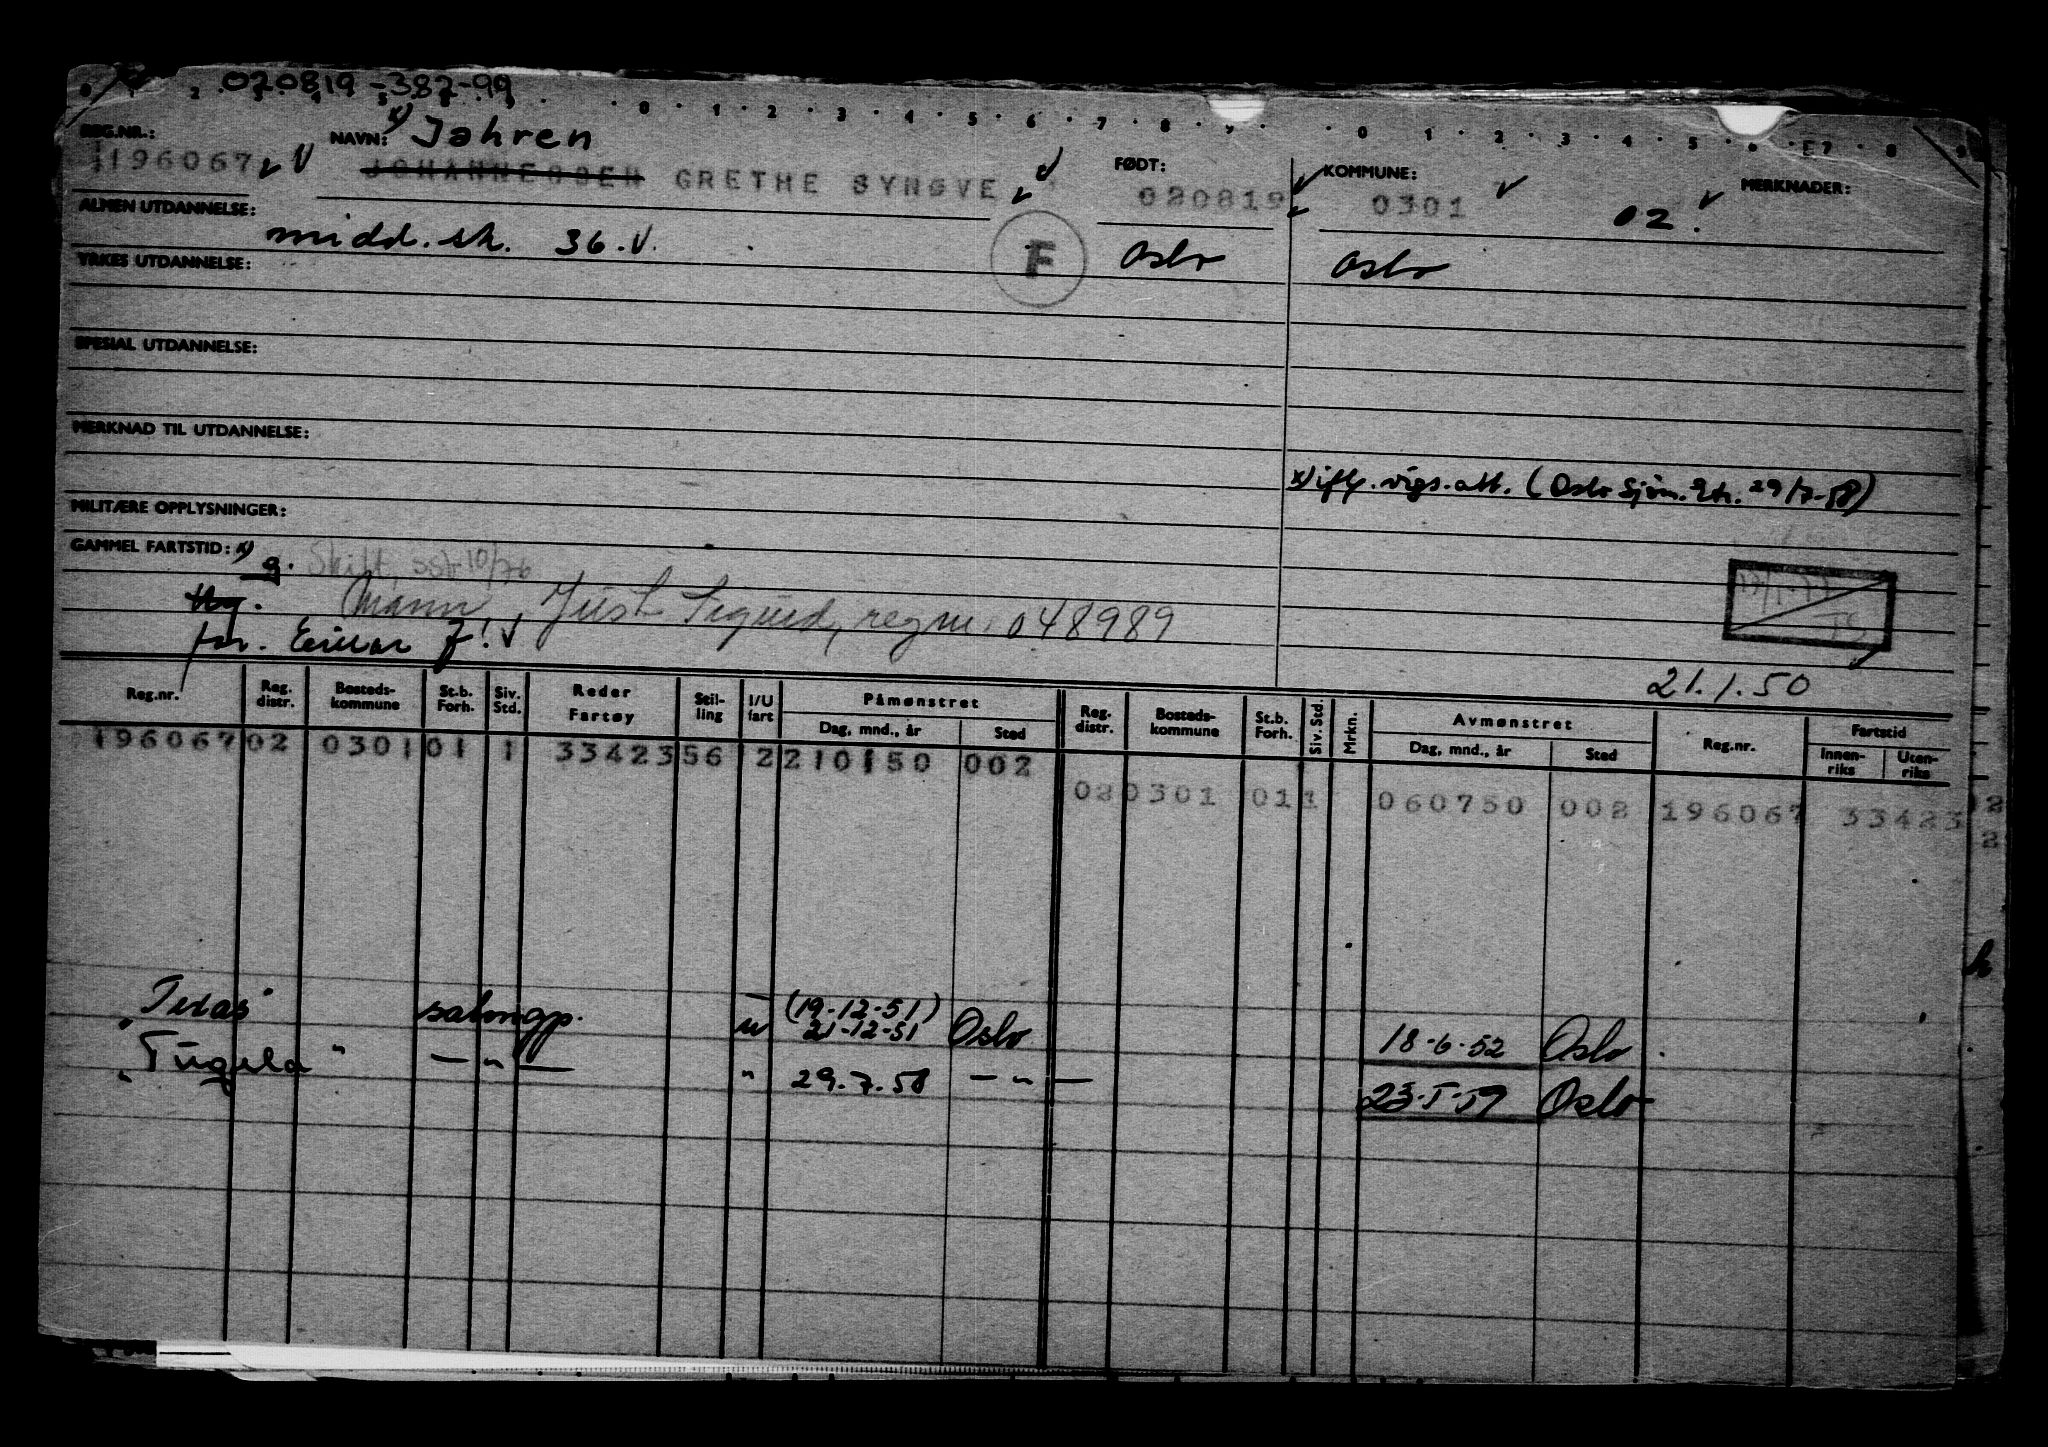 020819-387-99
REG.NR.: NAVN: x) Jahren FØDT: KOMMUNE: MERKNADER:
196067 JOHANNESSEN GRETHE SYNØVE 020819 0301 02.
ALMEN UTDANNELSE: midd.sk. 36. F Oslo Oslo
YRKES UTDANNELSE:
SPESIAL UTDANNELSE:
MERKNAD TIL UTDANNELSE:
x) ifl. vigs.att. (Oslo Sjøm.Ktr. 29/7-58)
MILITÆRE OPPLYSNINGER:
GAMMEL FARTSTID: x) g. Skilt, 10/76
Ug. Mann, Just Sigurd, regnr. 048989
far. Einar J!
21.1.50
Reg.nr. Reg. distr. Bosteds-kommune St.b. Forh. Siv. Std. Reder Fartøy Stil-ling I/U fart Påmønstret Dag, mnd., år Sted Reg. distr. Bosteds-kommune St.b. Forh. Siv. Std. Mrkn. Avmønstret Dag, mnd., år Sted Reg.nr. Fartstid Innen-riks Uten-riks
196067 02 0301 01 1 33423 56 2 210150 002
02 0301 01 1 060750 002 196067 33423
"Texas" salongp. u (19-12-51) 21-12-51 Oslo 18-6-52 Oslo
"Tugela" — " — " 29.7.58 — " — 23-5-59 Oslo